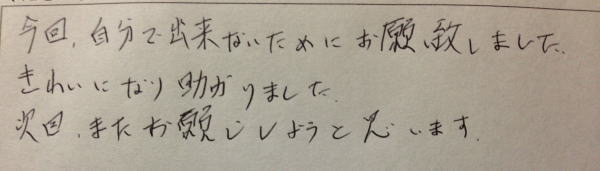 今回、自分で出来ないためにお願い致しました。
きれいになり助かりました。
次回、またお願いしようと思います。